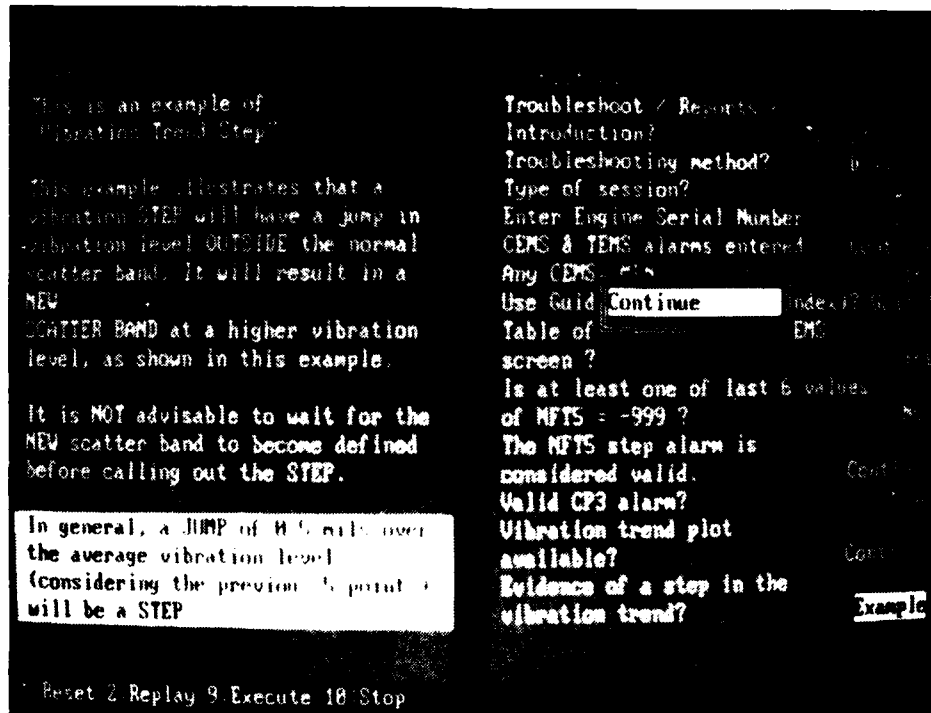 This is an example of
"Vibration Trend Step"
This example illustrates that a
vibration STEP will have a jump in
vibration level OUTSIDE the normal
scatter band. It will result in a
NEW
SCATTER BAND at a higher vibration
level, as shown in this example.
It is NOT advisable to wait for the
NEW scatter band to become defined
before calling out the STEP.
In general, a JUMP of 0.5 mils over
the average vibration level
(considering the previous 5 point
will be a STEP
Troubleshoot / Reports
Introduction?
Troubleshooting method?
Type of session?
Enter Engine Serial Number
CEMS & TEMS alarms entered
Any CEMS
Use Guid
Continue
Table of EMS
screen ?
Is at least one of last 6 values
of MFTS = -999 ?
The MFTS step alarm is
considered valid.
Valid CP3 alarm?
Vibration trend plot
available?
Evidence of a step in the
vibration trend?
Example
Reset 2 Replay 9 Execute 10 Stop